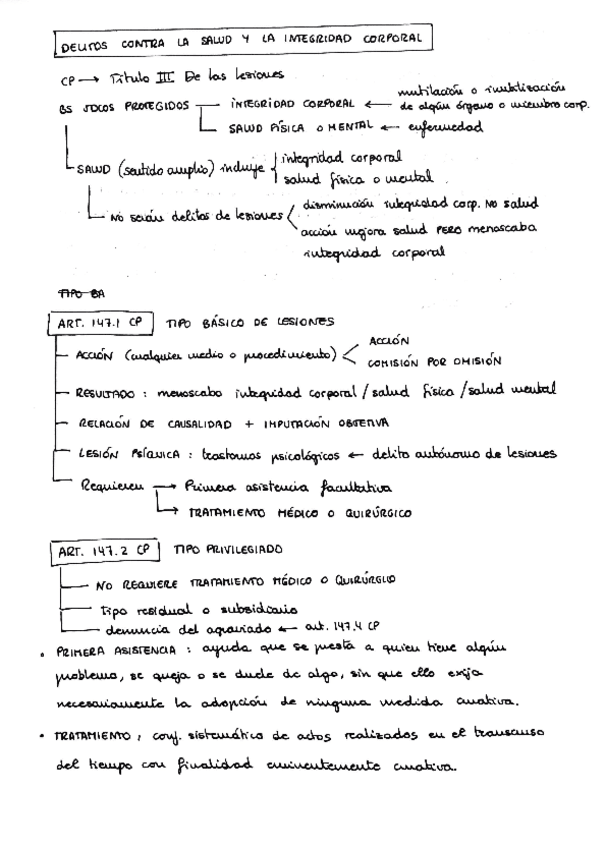 DELITOS CONTRA LA SALUD Y LA INTEGRIDAD CORPORAL
CP → Título III De las lesiones
BS JDCOS PROTEGIDOS — INTEGRIDAD CORPORAL ← mutilación o inutilización
de algún órgano o miembro corp.
SALUD FÍSICA O MENTAL ← enfermedad
SALUD (sentido amplio) incluye { integridad corporal
salud física o mental.
No serán delitos de lesiones < disminución integridad corp. NO salud
acción mejora salud PERO menoscaba
integridad corporal
TIPO BA
ART. 147.1 CP TIPO BÁSICO DE LESIONES
ACCIÓN (cualquier medio o procedimiento) < ACCIÓN
COMISIÓN POR OMISIÓN
RESULTADO : menoscabo integridad corporal / salud física / salud mental
RELACIÓN DE CAUSALIDAD + IMPUTACIÓN OBJETIVA
LESIÓN PSÍQUICA : trastornos psicológicos ← delito autónomo de lesiones
Requieren → Primera asistencia facultativa
→ TRATAMIENTO MÉDICO O QUIRÚRGICO
ART. 147.2 CP TIPO PRIVILEGIADO
NO REQUIERE TRATAMIENTO MÉDICO O QUIRÚRGICO
tipo residual o subsidiario
denuncia del agraviado ← art. 147.4 CP
• PRIMERA ASISTENCIA : ayuda que se presta a quien tiene algún
problema, se queja o se duele de algo, sin que ello exija
necesariamente la adopción de ninguna medida curativa.
• TRATAMIENTO : conj. sistemático de actos realizados en el transcurso
del tiempo con finalidad eminentemente curativa.